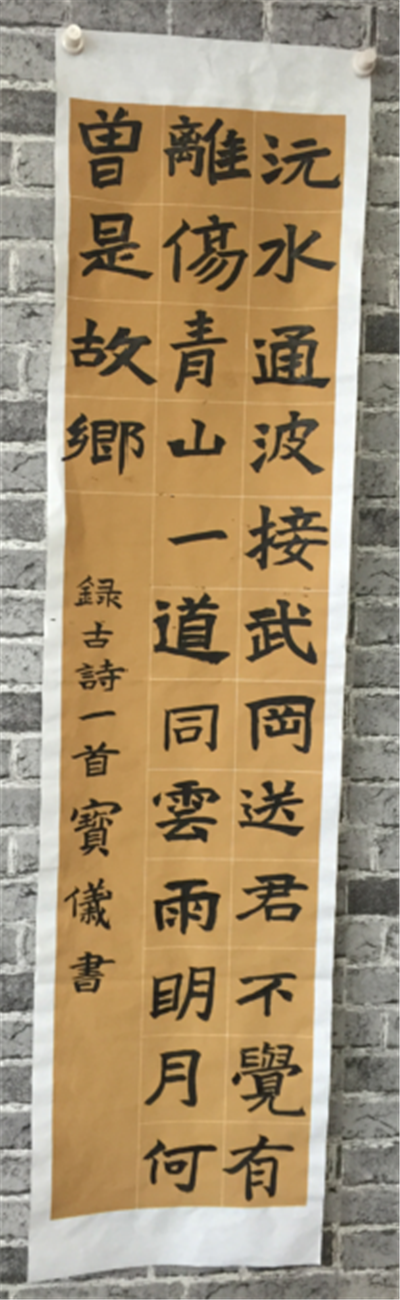 沅水通波接武岡送君不覺有
離傷青山一道同雲雨明月何
曾是故鄉
録古詩一首寶儀書